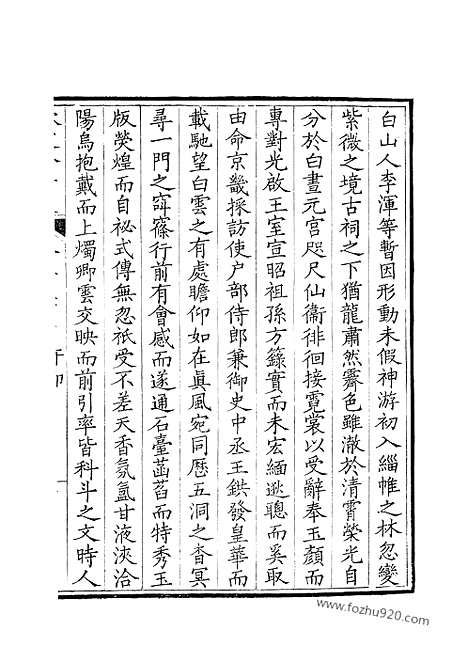 白山人李渾等暫因形動未假神游初入緇帷之林忽變
紫微之境古祠之下猶龍肅然霽色雖澈於清霄榮光自
分於白晝元宫咫尺仙衞徘徊接霓裳以受辭奉玉顔而
專對光啟王室宣昭祖孫方籙實而未宏緬遯聰而奚取
由命京畿採訪使户部侍郎兼御史中丞王鉷發皇華而
載馳望白雲之有處瞻仰如在眞風宛同歷五洞之杳冥
尋一門之窙篠行前有會感而遂通石臺菡萏而特秀玉
版熒煌而自祕式傳無忽祇受不差天香氛氳甘液浹洽
陽烏抱戴而上燭卿雲交映而前引率皆科斗之文時人
www.fozhu920.com